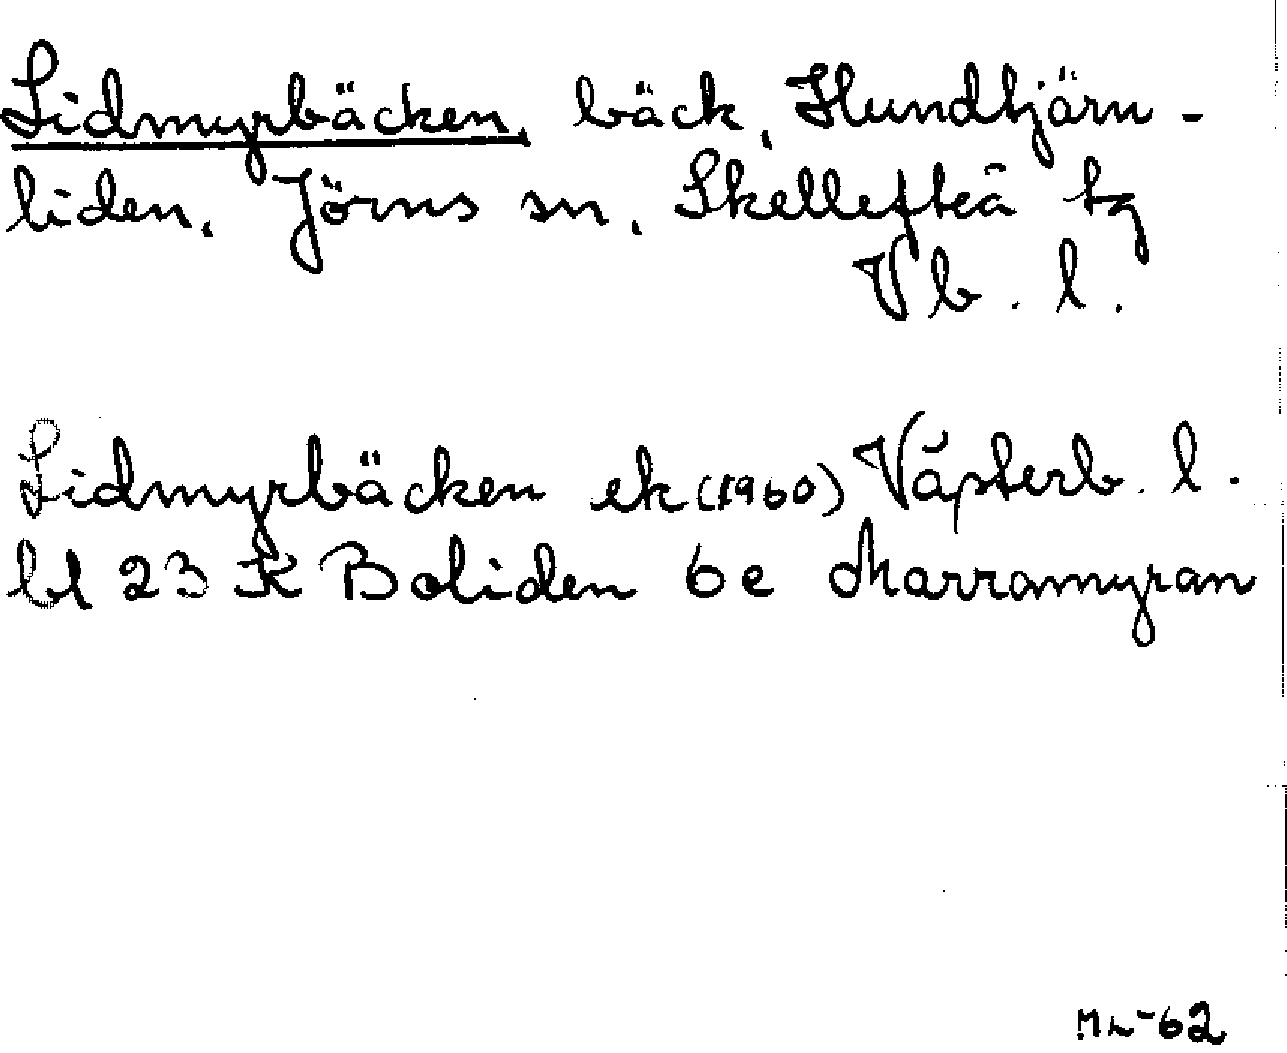 Lidmyrbäcken, bäck, Hundtjärn-
liden, Jörns sn, Skellefteå tg
Vb. l.
Lidmyrbäcken ek (1960) Västerb. l.
bl 23 K Boliden 6e Marramyran
ML-62